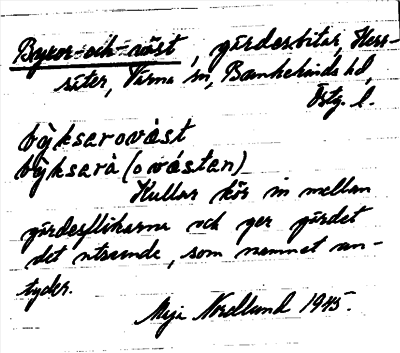 Byxor-och-väst, gärdesbitar, Herr-
säter, Värna sn, Bankekinds hd,
Östg. l.
bỳksarovást
bỳksarà (ovástan)
Kullar kör in mellan
gärdesflikarna och ger gärdet
det utseende, som namnet an-
tyder.
Nordlund 1945.